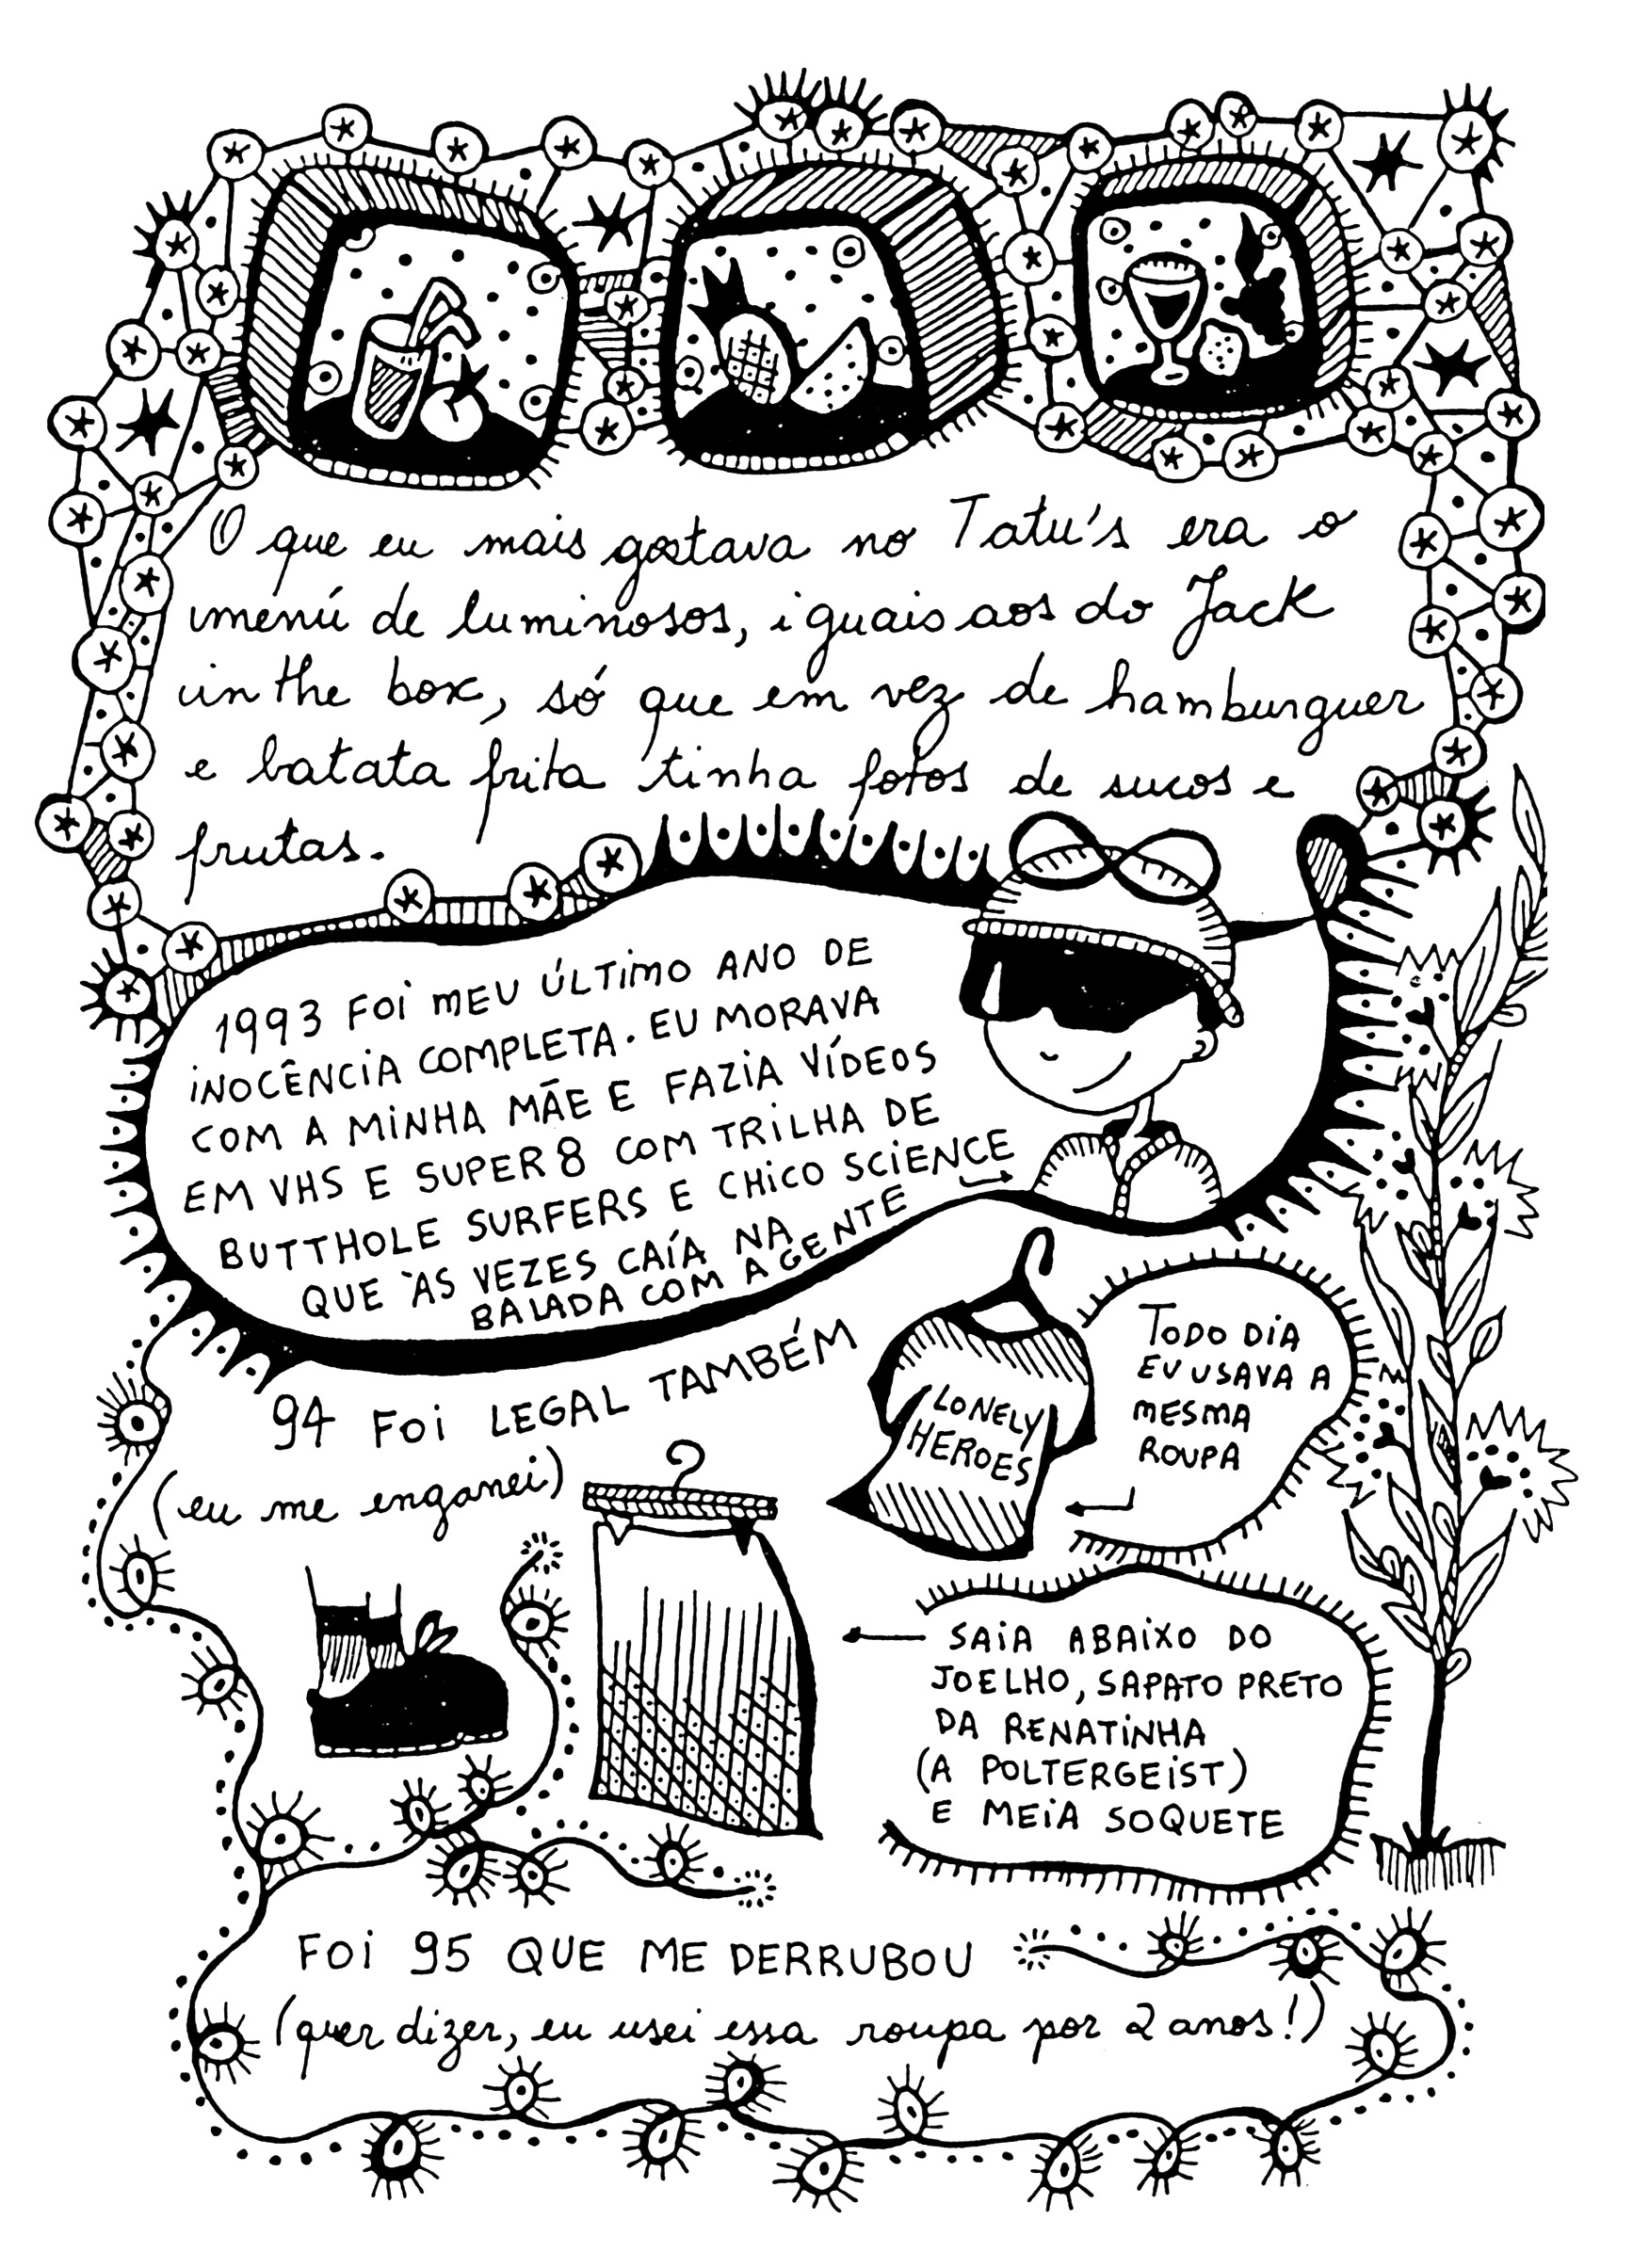 O que eu mais gostava no Tatu's era o
menú de luminosos, iguais aos do Jack
in the box, só que em vez de hamburguer
e batata frita tinha fotos de sucos e
frutas.
1993 FOI MEU ÚLTIMO ANO DE
INOCÊNCIA COMPLETA. EU MORAVA
COM A MINHA MÃE E FAZIA VÍDEOS
EM VHS E SUPER 8 COM TRILHA DE
BUTTHOLE SURFERS E CHICO SCIENCE
QUE ÀS VEZES CAÍA NA
BALADA COM A GENTE
94 FOI LEGAL TAMBÉM
(eu me enganei)
LONELY
HEROES
TODO DIA
EU USAVA A
MESMA
ROUPA
SAIA ABAIXO DO
JOELHO, SAPATO PRETO
DA RENATINHA
(A POLTERGEIST)
E MEIA SOQUETE
FOI 95 QUE ME DERRUBOU
(quer dizer, eu usei essa roupa por 2 anos!)